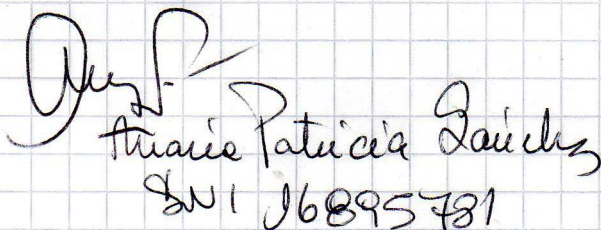 Maria Patricia Sanchez
DNI 16895781